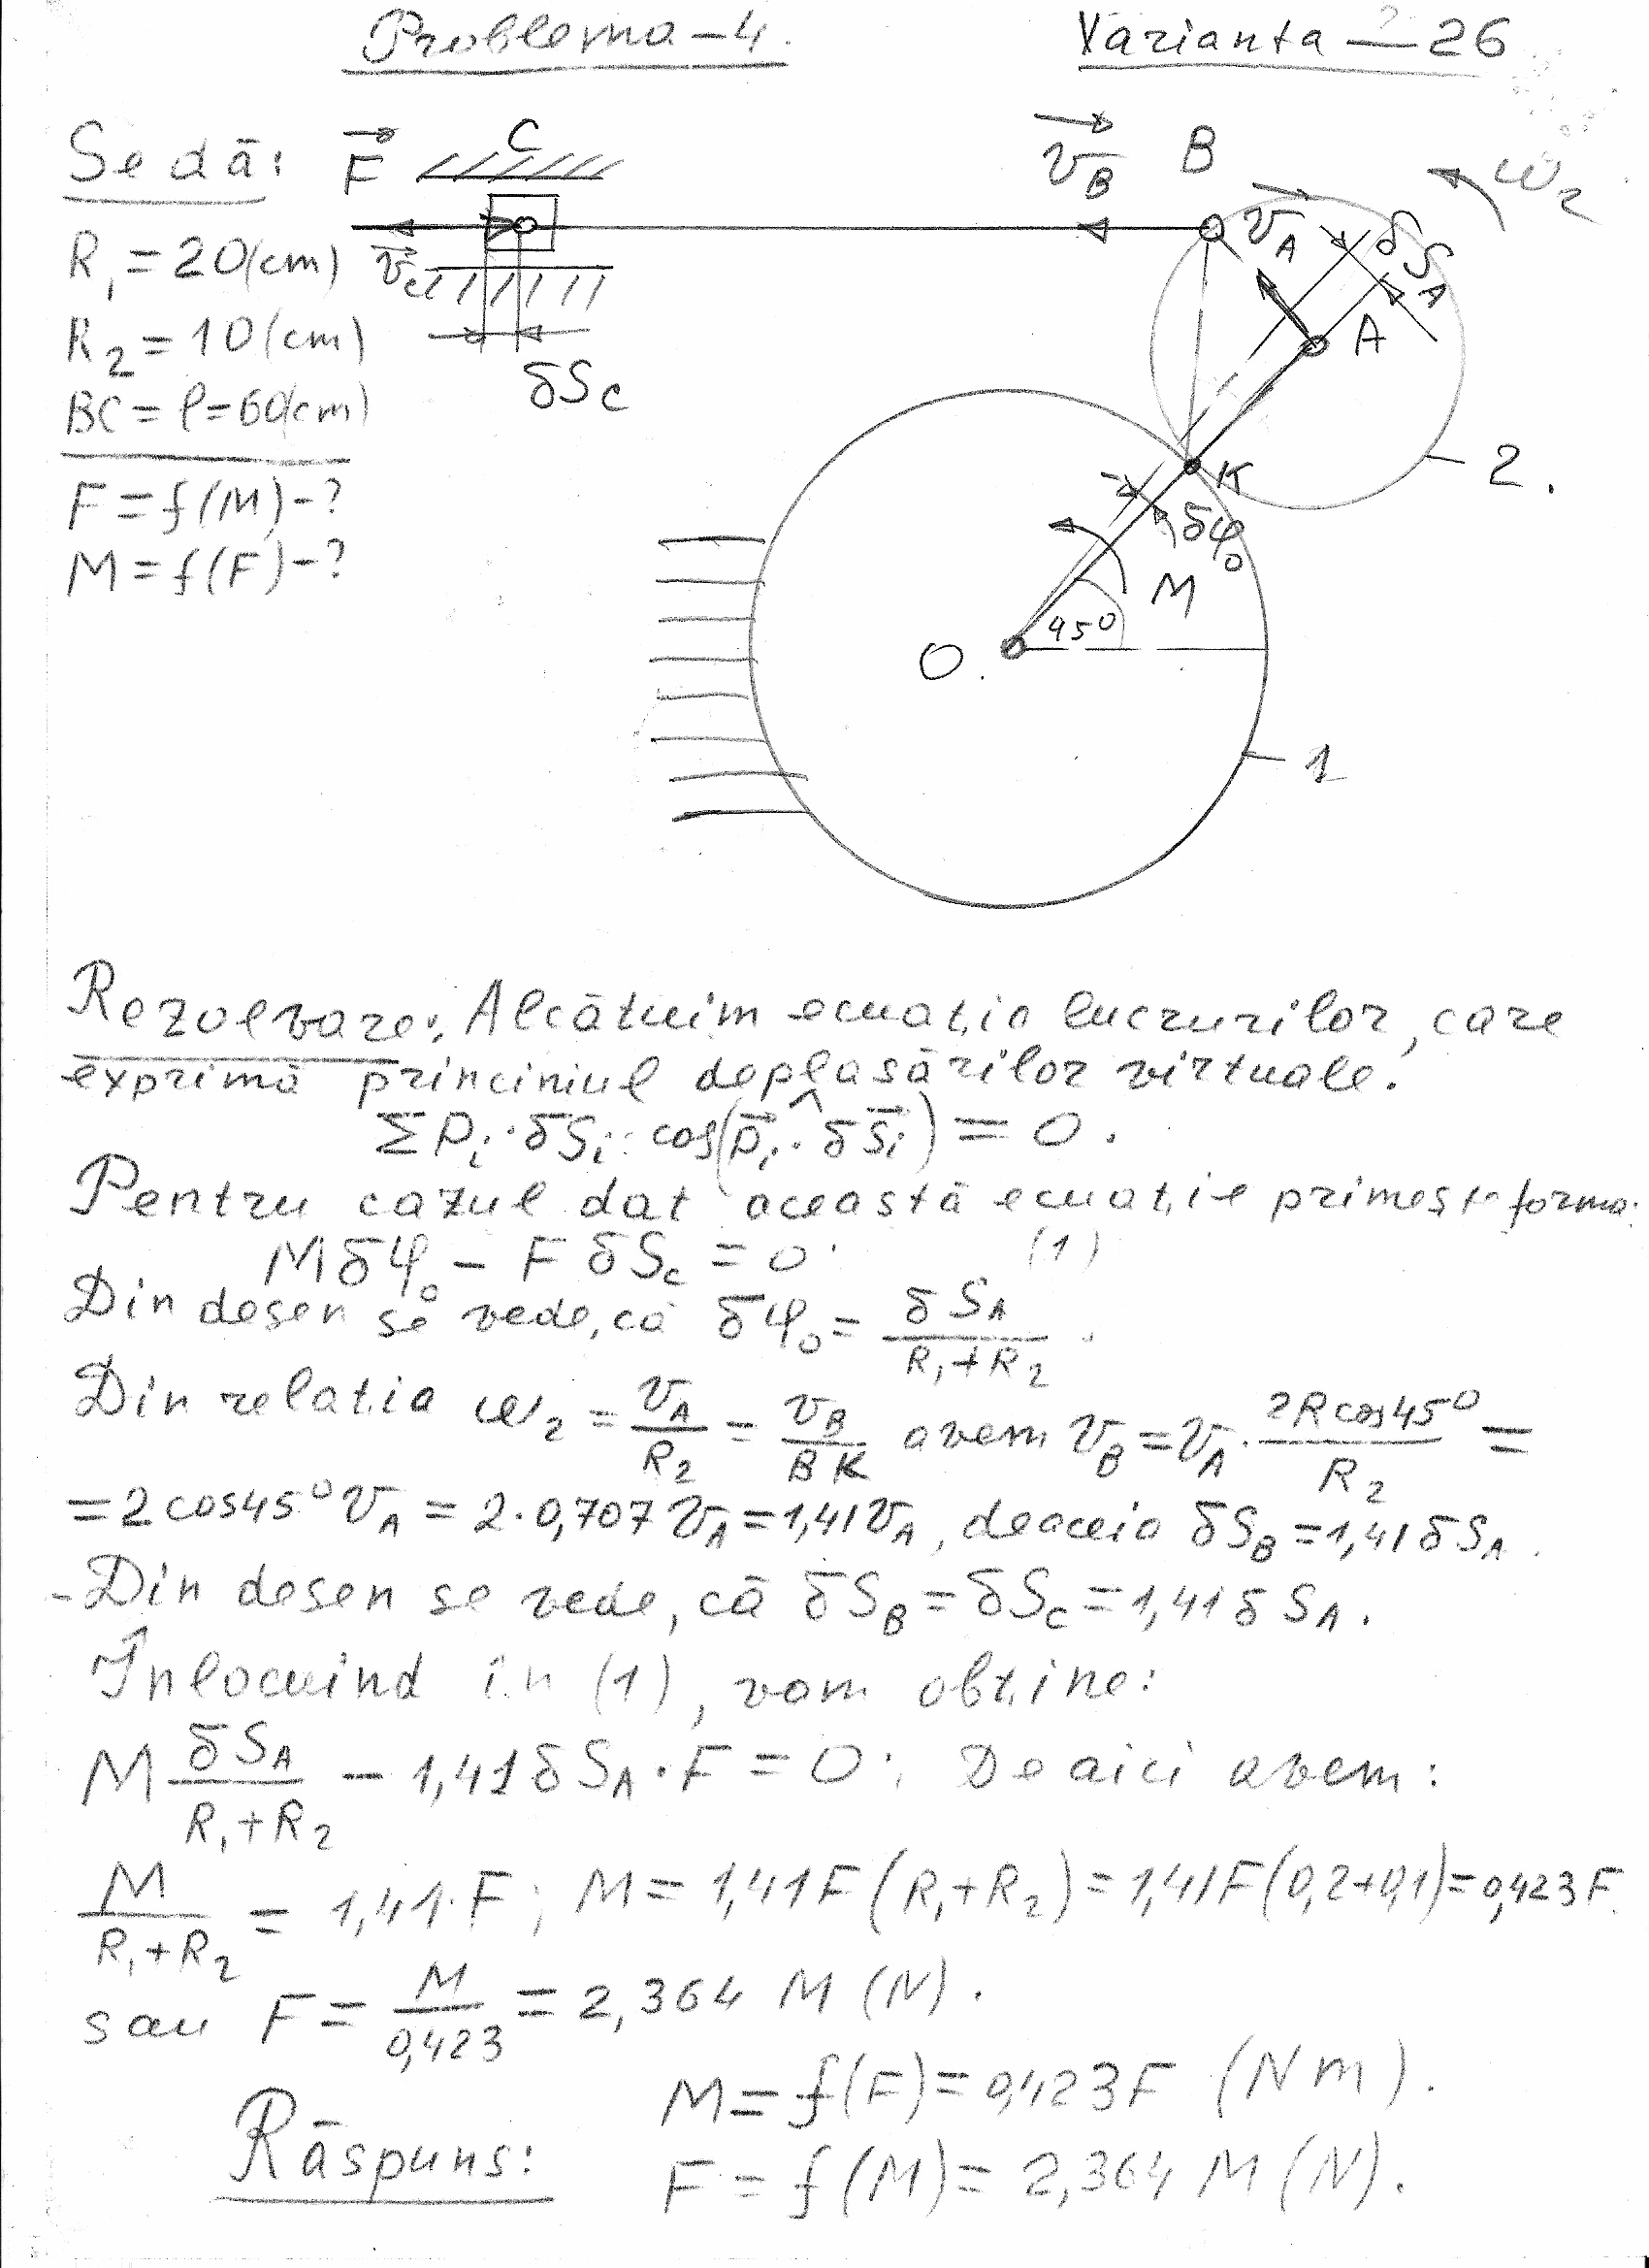 Problema – 4.
Varianta – 26
Se dă:
R₁ = 20 (cm)
R₂ = 10 (cm)
BC = l = 60 (cm)
F = f(M) – ?
M = f(F) – ?
F
C
v_C
δS_C
v_B
B
v_A
ω₂
δS_A
A
K
2.
δφ₀
M
45⁰
O.
1
Rezolvare: Alcătuim ecuația lucrurilor, care
exprimă princiniul deplasărilor virtuale.
Σ P_i · δS_i · cos(p_i ^ · δS_i) = 0.
Pentru cazul dat această ecuație primește forma:
M δφ₀ – F δS_C = 0. (1)
Din desen se vede, că δφ₀ = δS_A / (R₁ + R₂).
Din relația ω₂ = v_A / R₂ = v_B / BK avem v_B = v_A · 2R cos45⁰ / R₂ =
= 2 cos45⁰ v_A = 2 · 0,707 v_A = 1,41 v_A, deaceia δS_B = 1,41 δS_A.
– Din desen se vede, că δS_B = δS_C = 1,41 δS_A.
Înlocuind în (1), vom obține:
M δS_A / (R₁ + R₂) – 1,41 δS_A · F = 0; De aici avem:
M / (R₁ + R₂) = 1,41 · F; M = 1,41 F (R₁ + R₂) = 1,41 F (0,2 + 0,1) = 0,423 F.
sau F = M / 0,423 = 2,364 M (N).
M = f(F) = 0,423 F (Nm).
Răspuns:
F = f(M) = 2,364 M (N).